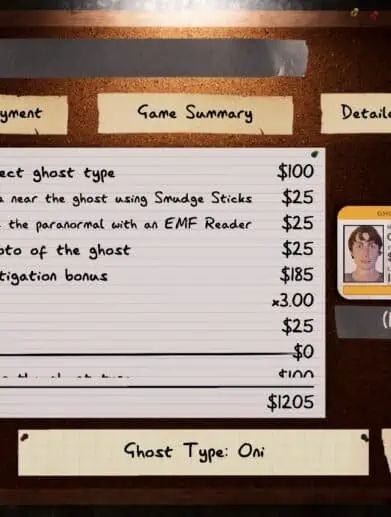 yment
Game Summary
Detaile
ect ghost type $100
a near the ghost using Smudge Sticks $25
the paranormal with an EMF Reader $25
oto of the ghost $25
tigation bonus $185
x3.00
$25
$0
$100
$1205
Ghost Type: Oni